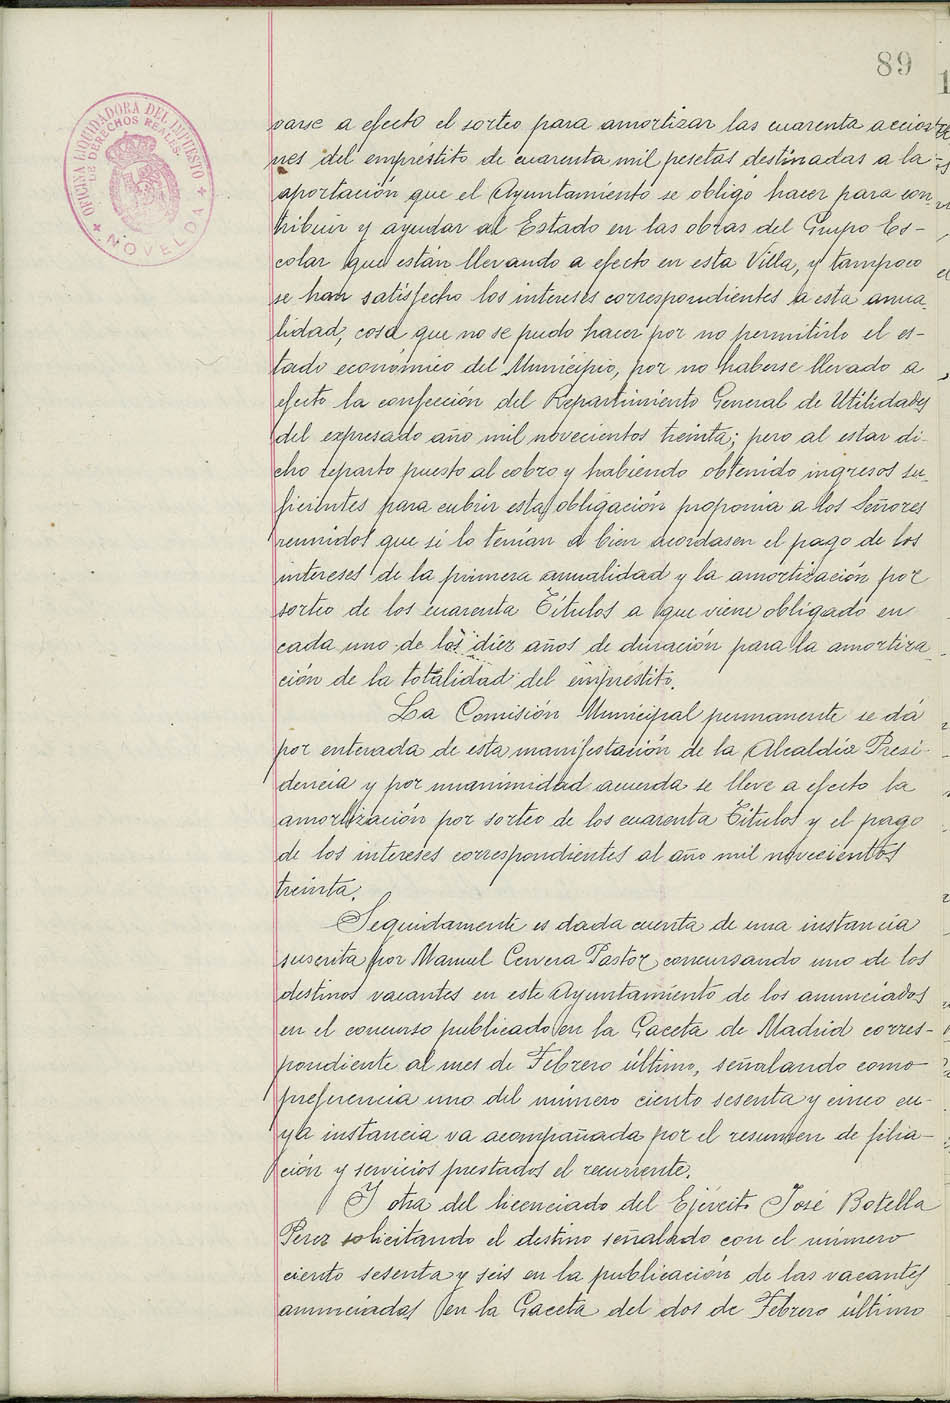 89
OFICINA LIQUIDADORA DEL IMPUESTO
DE DERECHOS REALES.
NOVELDA
varse a efecto el sorteo para amortizar las cuarenta accio-
nes del empréstito de cuarenta mil pesetas destinadas a la
aportación que el Ayuntamiento se obligó hacer para con-
tribuir y ayudar al Estado en las obras del Grupo Es-
colar que están llevando a efecto en esta Villa, y tampoco
se han satisfecho los intereses correspondientes a esta anua-
lidad, cosa que no se pudo hacer por no permitirlo el es-
tado económico del Municipio, por no haberse llevado a
efecto la confección del Repartimiento General de Utilidades
del expresado año mil novecientos treinta; pero al estar di-
cho reparto puesto al cobro y habiendo obtenido ingresos su-
ficientes para cubrir esta obligación proponia a los Señores
reunidos que si lo tenían a bien acordasen el pago de los
intereses de la primera anualidad y la amortización por
sorteo de los cuarenta Títulos a que viene obligado en
cada uno de los diéz años de duración para la amortiza-
ción de la totalidad del empréstito.
La Comisión Municipal permanente se dá
por enterada de esta manifestación de la Alcaldía Presi-
dencia y por unanimidad acuerda se lleve a efecto la
amortización por sorteo de los cuarenta Títulos y el pago
de los intereses correspondientes al año mil novecientos
treinta.
Seguidamente es dada cuenta de una instancia
suscrita por Manuel Cervera Pastor concursando uno de los
destinos vacantes en este Ayuntamiento de los anunciados
en el concurso publicado en la Gaceta de Madrid corres-
pondiente al mes de Febrero último, señalando como
preferencia uno del número ciento sesenta y cinco cu-
ya instancia va acompañada por el resumen de filia-
ción y servicios prestados el recurrente.
Y otra del licenciado del Ejército José Botella
Perez solicitando el destino señalado con el número
ciento sesenta y seis en la publicación de las vacantes
anunciadas en la Gaceta del dos de Febrero último